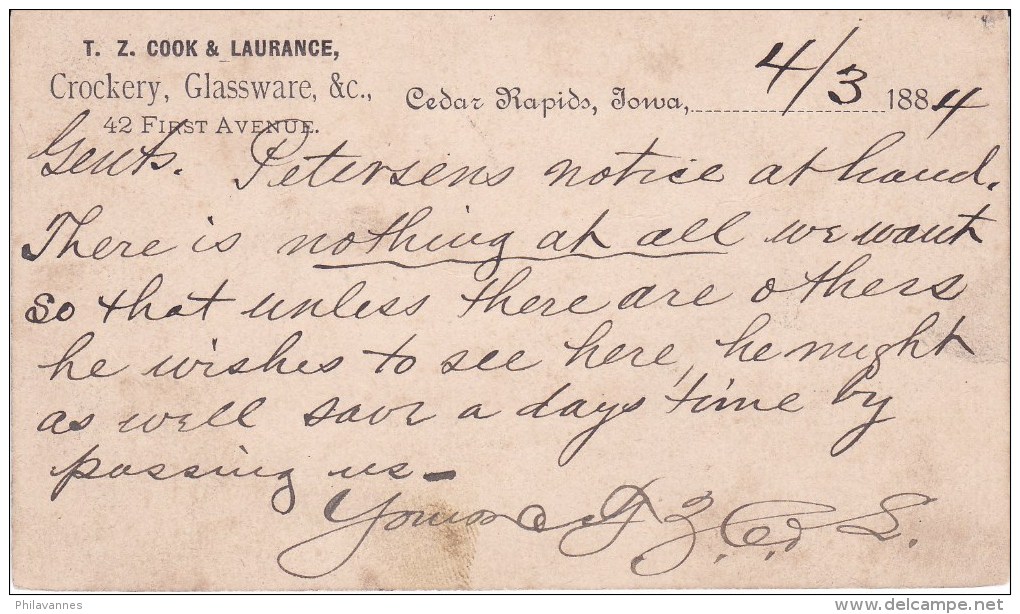 T. Z. COOK & LAURANCE,
Crockery, Glassware, &c.,
42 FIRST AVENUE.
Cedar Rapids, Iowa, 4/3 1884
Gents. Petersens notice at hand.
There is nothing at all we want
so that unless there are others
he wishes to see here, he might
as well save a days time by
passing us -
Yours T. Z. C. & L.
Philavannes
delcampe.net